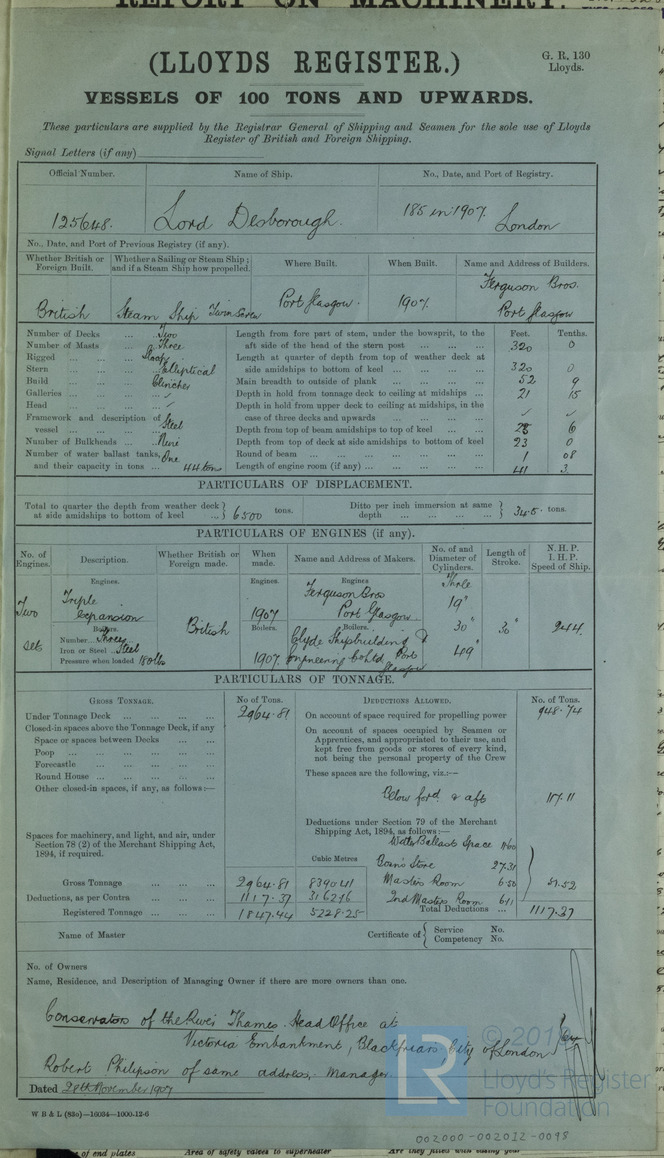 REPORT ON MACHINERY.
(LLOYDS REGISTER.)
G. R. 130
Lloyds.
VESSELS OF 100 TONS AND UPWARDS.
These particulars are supplied by the Registrar General of Shipping and Seamen for the sole use of Lloyds
Register of British and Foreign Shipping.
Signal Letters (if any)
Official Number. Name of Ship. No., Date, and Port of Registry.
125648. Lord Desborough. 185 in 1907. London
No., Date, and Port of Previous Registry (if any).
Whether British or Foreign Built. Whether a Sailing or Steam Ship; and if a Steam Ship how propelled. Where Built. When Built. Name and Address of Builders.
British Steam Ship Twin Screw Port Glasgow. 1907. Ferguson Bros. Port Glasgow
Number of Decks ... Two
Number of Masts ... Three
Rigged ... Sloop
Stern ... Elliptical
Build ... Clincher
Galleries ... ✓
Head ... ✓
Framework and description of vessel ... Steel
Number of Bulkheads ... Nine
Number of water ballast tanks, and their capacity in tons ... One 44 tons
Feet. Tenths.
Length from fore part of stem, under the bowsprit, to the
aft side of the head of the stern post ... 320 0
Length at quarter of depth from top of weather deck at
side amidships to bottom of keel ... 320 0
Main breadth to outside of plank ... 52 9
Depth in hold from tonnage deck to ceiling at midships ... 21 15
Depth in hold from upper deck to ceiling at midships, in the
case of three decks and upwards ... ✓ ✓
Depth from top of beam amidships to top of keel ... 6
Depth from top of deck at side amidships to bottom of keel 23 0
Round of beam ... 1 08
Length of engine room (if any) ... 41 3.
PARTICULARS OF DISPLACEMENT.
Total to quarter the depth from weather deck at side amidships to bottom of keel ... 6500 tons.
Ditto per inch immersion at same depth ... 34.5. tons.
PARTICULARS OF ENGINES (if any).
No. of Engines. Description. Whether British or Foreign made. When made. Name and Address of Makers. No. of and Diameter of Cylinders. Length of Stroke. N.H.P. I.H.P. Speed of Ship.
Engines. Engines. Engines
Two sets Triple expansion British 1907 Ferguson Bros Port Glasgow. Three 19" 30" 49" 30" 244
Boilers. Boilers. Boilers.
Number Three
Iron or Steel Steel
Pressure when loaded 180 lbs
1907. Clyde Shipbuilding & Engineering Co Ltd Port Glasgow
PARTICULARS OF TONNAGE.
GROSS TONNAGE. No of Tons. DEDUCTIONS ALLOWED. No. of Tons.
Under Tonnage Deck ... 2964.81
Closed-in spaces above the Tonnage Deck, if any
Space or spaces between Decks ...
Poop ...
Forecastle ...
Round House ...
Other closed-in spaces, if any, as follows:—
Spaces for machinery, and light, and air, under
Section 78 (2) of the Merchant Shipping Act,
1894, if required.
On account of space required for propelling power 948.74
On account of spaces occupied by Seamen or
Apprentices, and appropriated to their use, and
kept free from goods or stores of every kind,
not being the personal property of the Crew
These spaces are the following, viz.:—
Below ford. & aft 117.11
Deductions under Section 79 of the Merchant
Shipping Act, 1894, as follows:—
Water Ballast Space 11.60
Bosn's Store 27.31
Masters Room 6.50
2nd Masters Room 6.11
51.52
Cubic Metres
Gross Tonnage ... 2964.81 8390.41
Deductions, as per Contra ... 1117.37 3162.16
Registered Tonnage ... 1847.44 5228.25
Total Deductions ... 1117.37
Name of Master
Certificate of { Service No.
Competency No.
No. of Owners
Name, Residence, and Description of Managing Owner if there are more owners than one.
Conservators of the River Thames. Head Office at
Victoria Embankment, Blackfriars City of London
Robert Philipson of same address. Manager
Dated 28th November 1907
W B & L (83o)—10034—1000-12-6
LR © 2019
Lloyd's Register
Foundation
002000-002012-0098
of end plates Area of safety valves to superheater Are they fitted with easing gear